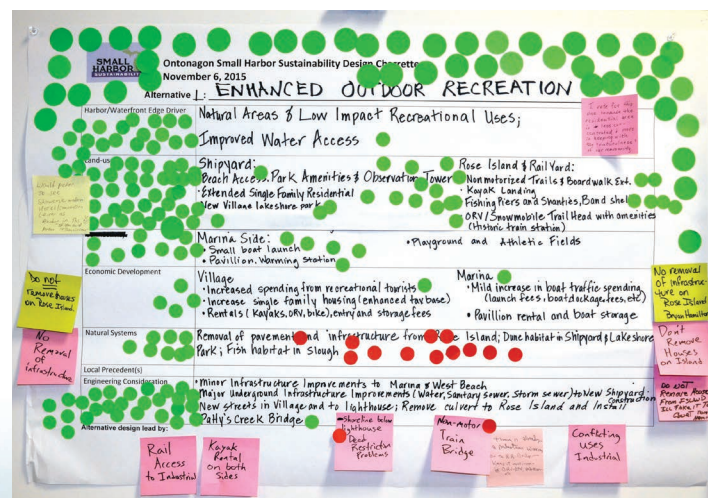 SMALL
HARBOR
SUSTAINABILITY
Ontonagon Small Harbor Sustainability Design Charrette
November 6, 2015
Alternative 1: ENHANCED OUTDOOR RECREATION
Harbor/Waterfront Edge Driver
Natural Areas & Low Impact Recreational Uses;
Improved Water Access
I vote for this
Land-us
Shipyard:
Beach Access, Park Amenities & Observation Tower
• Extended Single Family Residential
New Village lakeshore park
Rose Island & Rail Yard:
Nonmotorized Trails & Boardwalk Ext.
• Kayak Landing
Fishing Piers and Shanties, Band shel
ORV/Snowmobile Trail Head with amenities
(Historic train station)
Marina Side:
• Small boat launch
• Pavillion, Warming station
• Playground and Athletic Fields
Economic Development
Village
• Increased spending from recreational torists
• Increase single family housing (enhanced tax base)
• Rentals (Kayaks, ORV, bike), entry and storage fees
Marina
• Mild increase in boat traffic spending
(launch fees, boat dockage fees, etc)
• Pavillion rental and boat storage
Natural Systems
Removal of pavement and infrastructure from Rose Island; Dune habitat in Shipyard & Lakeshore
Park; Fish habitat in Slough
Local Precedent(s)
Engineering Consideration
• Minor Infrastructure Improvments to Marina & West Beach
Major Underground Infrastructure Improvements (Water, Sanitary sewer, Storm sewer) to New Shipyard Construction
New streets in Village and to lighthouse; Remove culvert to Rose Island and Install
Pahy's Creek Bridge
Alternative design lead by:
Do not
remove houses
on Rose Island.
No
Removal
of
infrastructure
No removal
of Infrastruc-
ture on
Rose Island
Bryan Hamilton
Don't
Remove
Houses
on Island
DO NOT
Remove Houses
From ISLAND
Rail
Access
to Industrial
Kayak
Rental
on both
Sides
-shoreline below
lighthouse
• Deed
Restriction
Problems
Non-Motor
Train
Bridge
Conflicting
Uses
Industrial